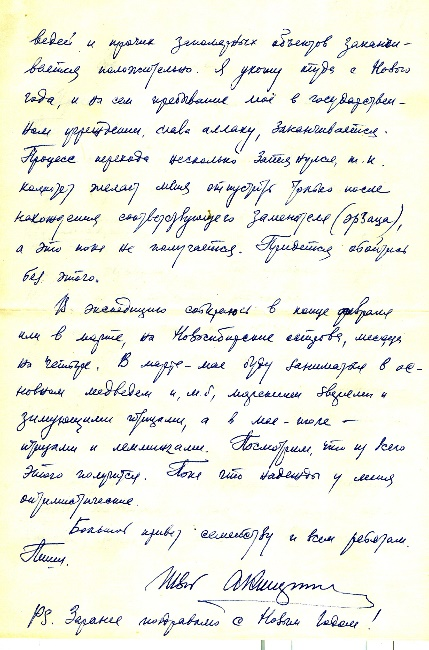 ведей и прочих занятных объектов заканчи-
вается положительно. Я ухожу туда с Нового
года, и на сем пребывание моё в государствен-
ном учреждении, слава аллаху, заканчивается.
Процесс перехода несколько затянулся, т.к.
комитет желает меня отпустить только после
нахождения соответствующего заменителя (эрзаца),
а это пока не получается. Придется обойтись
без этого.
В экспедицию собираюсь в конце февраля
или в марте, на Новосибирские острова, месяца
на четыре. В марте-мае буду заниматься в ос-
новном медведем и, м.б., морскими зверями и
зимующими птицами, а в мае-июле –
птицами и леммингами. Посмотрим, что из всего
этого получится. Пока что надежды у меня
оптимистические.
Большой привет семейству и всем ребятам.
Пиши.
Твой
PS. Заранее поздравляю с Новым Годом!